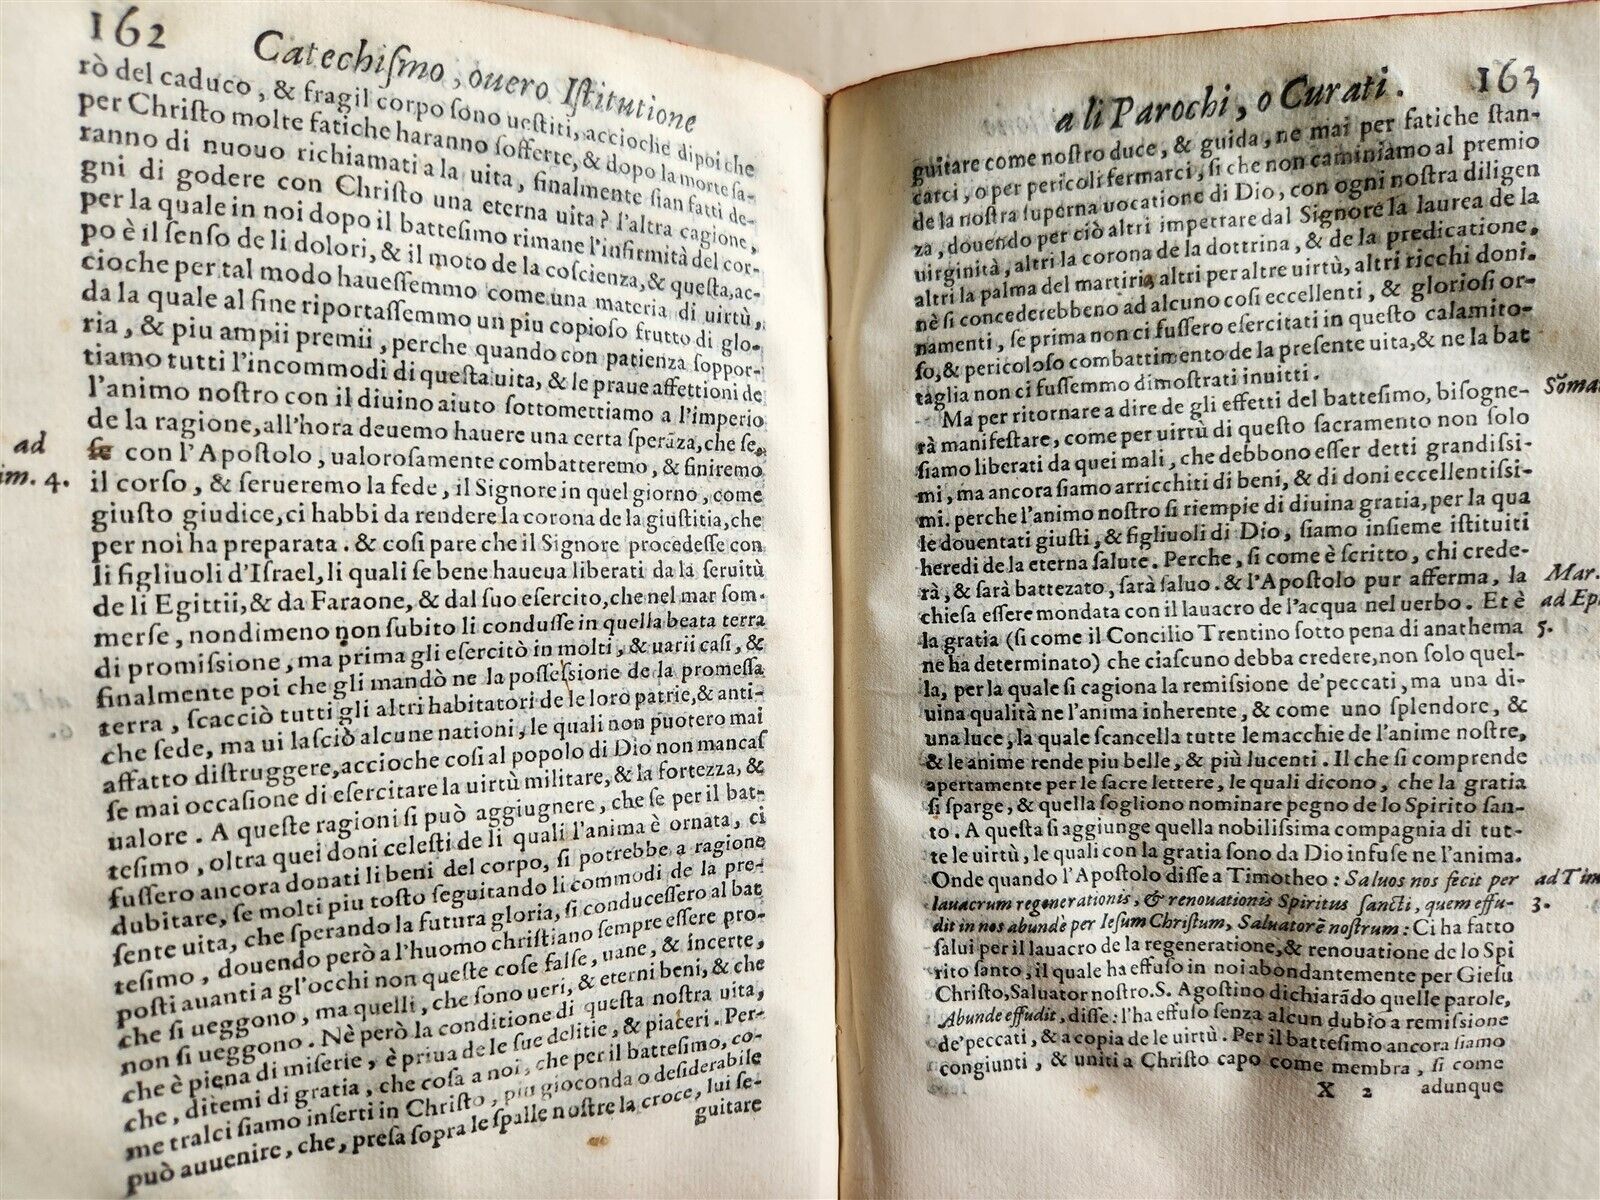 162
Catechiſmo, ouero Iſtitutione
rò del caduco, & fragil corpo ſono ueſtiti, accioche dipoi che
per Chriſto molte fatiche haranno ſofferte, & dopo la morte ſa-
ranno di nuouo richiamati a la uita, finalmente ſian fatti de-
gni di godere con Chriſto una eterna uita? l'altra cagione,
per la quale in noi dopo il batteſimo rimane l'infirmità del cor-
po è il ſenſo de li dolori, & il moto de la coſcienza, & queſta, ac-
cioche per tal modo haueſſemmo come una materia di uirtù,
da la quale al fine riportaſſemmo un piu copioſo frutto di glo-
ria, & piu ampii premii, perche quando con patienza ſoppor-
tiamo tutti l'incommodi di queſta uita, & le praue affettioni de
l'animo noſtro con il diuino aiuto ſottomettiamo a l'imperio
de la ragione, all'hora deuemo hauere una certa ſperāza, che ſe,
ad
ſe con l'Apoſtolo, ualoroſamente combatteremo, & finiremo
im. 4.
il corſo, & ſerueremo la fede, il Signore in quel giorno, come
giuſto giudice, ci habbi da rendere la corona de la giuſtitia, che
per noi ha preparata. & coſi pare che il Signore procedeſſe con
li figliuoli d'Iſrael, li quali ſe bene haueua liberati da la ſeruitù
de li Egittii, & da Faraone, & dal ſuo eſercito, che nel mar ſom-
merſe, nondimeno non ſubito li conduſſe in quella beata terra
di promiſſione, ma prima gli eſercitò in molti, & uarii caſi, &
finalmente poi che gli mandò ne la poſſeſſione de la promeſſa
terra, ſcacciò tutti gli altri habitatori de le loro patrie, & anti-
che ſede, ma ui laſciò alcune nationi, le quali non puotero mai
affatto diſtruggere, accioche coſi al popolo di Dio non mancaſ
ſe mai occaſione di eſercitare la uirtù militare, & la fortezza, &
ualore. A queſte ragioni ſi può aggiugnere, che ſe per il bat-
teſimo, oltra quei doni celeſti de li quali l'anima è ornata, ci
fuſſero ancora donati li beni del corpo, ſi potrebbe a ragione
dubitare, ſe molti piu toſto ſeguitando li commodi de la pre-
ſente uita, che ſperando la futura gloria, ſi conduceſſero al bat
teſimo, douendo però a l'huomo chriſtiano ſempre eſſere pro-
poſti auanti a gl'occhi non queſte coſe falſe, uane, & incerte,
che ſi ueggono, ma quelli, che ſono ueri, & eterni beni, & che
non ſi ueggono. Nè però la conditione di queſta noſtra uita,
che è piena di miſerie, è priua de le ſue delitie, & piaceri. Per-
che, ditemi di gratia, che coſa a noi, che per il batteſimo, co-
me tralci ſiamo inſerti in Chriſto, piu gioconda o deſiderabile
può auuenire, che, preſa ſopra le ſpalle noſtre la croce, lui ſe-
guitare
a li Parochi, o Curati.
163
guitare come noſtro duce, & guida, ne mai per fatiche ſtan-
carci, o per pericoli fermarci, ſi che non caminiamo al premio
de la noſtra ſuperna uocatione di Dio, con ogni noſtra diligen
za, douendo per ciò altri impetrare dal Signore la laurea de la
uirginità, altri la corona de la dottrina, & de la predicatione,
altri la palma del martirio, altri per altre uirtù, altri ricchi doni.
nè ſi concederebbeno ad alcuno coſi eccellenti, & glorioſi or-
namenti, ſe prima non ci fuſſero eſercitati in queſto calamito-
ſo, & pericoloſo combattimento de la preſente uita, & ne la bat
taglia non ci fuſſemmo dimoſtrati inuitti.
Ma per ritornare a dire de gli effetti del batteſimo, biſogne-
Sōma
rà manifeſtare, come per uirtù di queſto ſacramento non ſolo
ſiamo liberati da quei mali, che debbono eſſer detti grandiſſi-
mi, ma ancora ſiamo arricchiti di beni, & di doni eccellentiſſi-
mi. perche l'animo noſtro ſi riempie di diuina gratia, per la qua
le douentati giuſti, & figliuoli di Dio, ſiamo inſieme iſtituiti
heredi de la eterna ſalute. Perche, ſi come è ſcritto, chi crede-
rà, & ſarà battezato, ſarà ſaluo. & l'Apoſtolo pur afferma, la
Mar.
chieſa eſſere mondata con il lauacro de l'acqua nel uerbo. Et è
ad Ep
la gratia (ſi come il Concilio Trentino ſotto pena di anathema
5.
ne ha determinato) che ciaſcuno debba credere, non ſolo quel-
la, per la quale ſi cagiona la remiſſione de' peccati, ma una di-
uina qualità ne l'anima inherente, & come uno ſplendore, &
una luce, la quale ſcancella tutte le macchie de l'anime noſtre,
& le anime rende piu belle, & più lucenti. Il che ſi comprende
apertamente per le ſacre lettere, le quali dicono, che la gratia
ſi ſparge, & quella ſogliono nominare pegno de lo Spirito ſan-
to. A queſta ſi aggiunge quella nobiliſſima compagnia di tut-
te le uirtù, le quali con la gratia ſono da Dio infuſe ne l'anima.
Onde quando l'Apoſtolo diſſe a Timotheo: Saluos nos fecit per
ad Tim
lauacrum regenerationis, & renouationis Spiritus ſancti, quem effu-
3.
dit in nos abundè per Ieſum Chriſtum, Saluatorē noſtrum: Ci ha fatto
ſalui per il lauacro de la regeneratione, & renouatione de lo Spi
rito ſanto, il quale ha effuſo in noi abondantemente per Gieſu
Chriſto, Saluator noſtro. S. Agoſtino dichiarādo quelle parole,
Abunde effudit, diſſe: l'ha effuſo ſenza alcun dubio a remiſſione
de' peccati, & a copia de le uirtù. Per il batteſimo ancora ſiamo
congiunti, & uniti a Chriſto capo come membra, ſi come
X 2 adunque